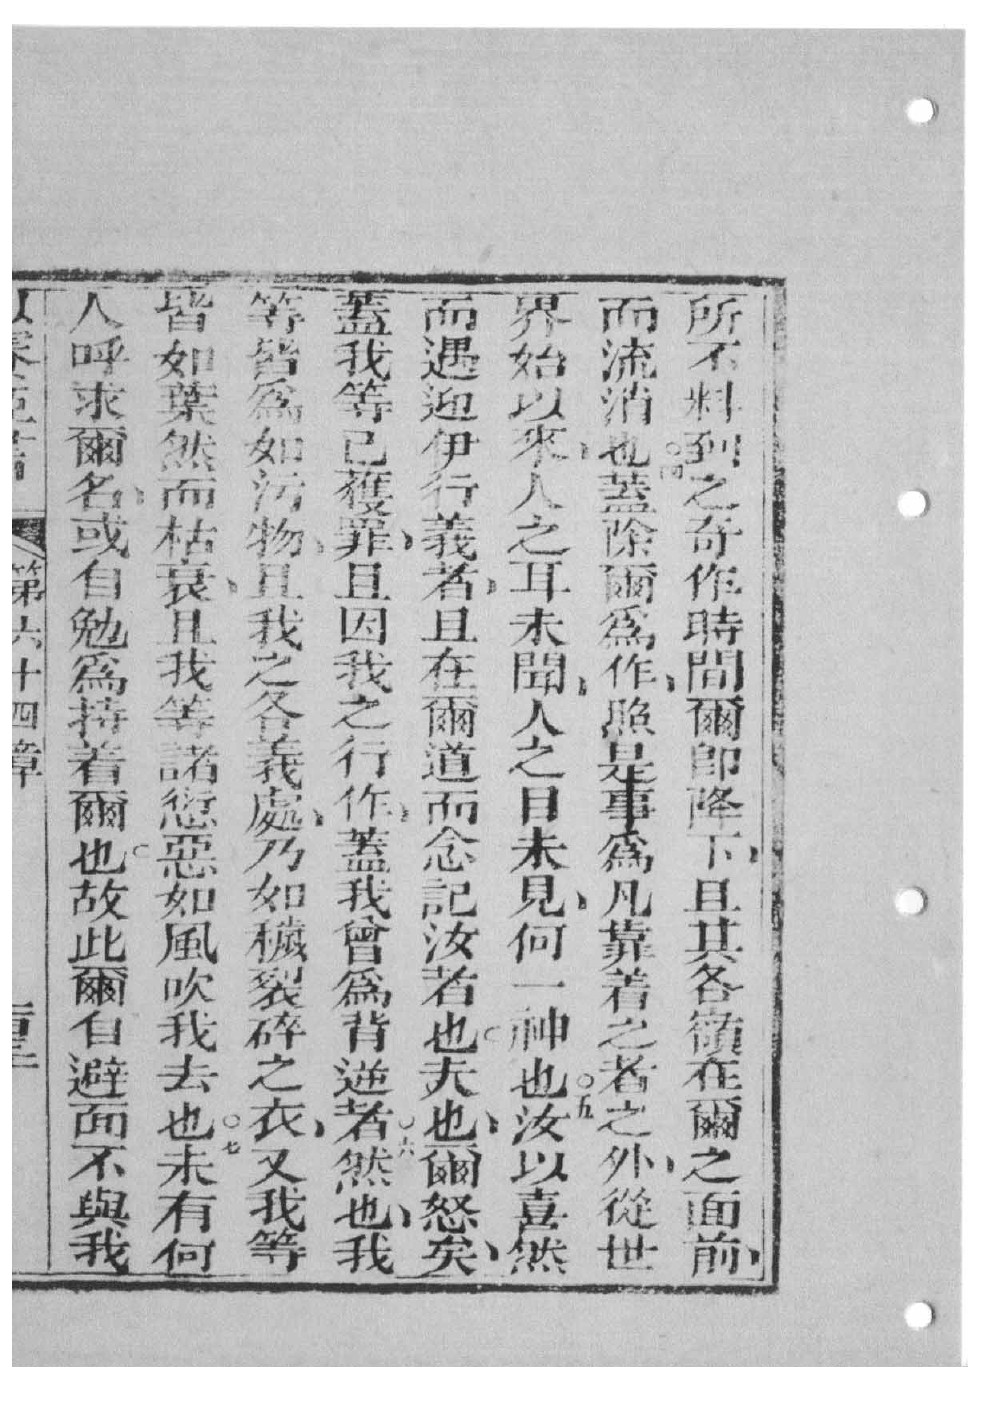 所不料到之奇作時間爾即降下、且其各嶺在爾之面前、
而流消也○四蓋除爾爲作、照是事爲凡靠着之者之外、從世
界始以來、人之耳未聞、人之目未見、何一神也○五汝以喜然
而遇迎伊行義者、且在爾道而念記汝者也。夫也、爾怒矣、
蓋我等已獲罪、且因我之行作、蓋我曾爲背逆者然也、○六我
等皆爲如污物、且我之各義處、乃如穢裂碎之衣、又我等
皆如葉然而枯衰、且我等諸愆惡如風吹我去也○七未有何
人呼求爾名、或自勉爲持着爾也。故此爾自避面不與我
第六十四章